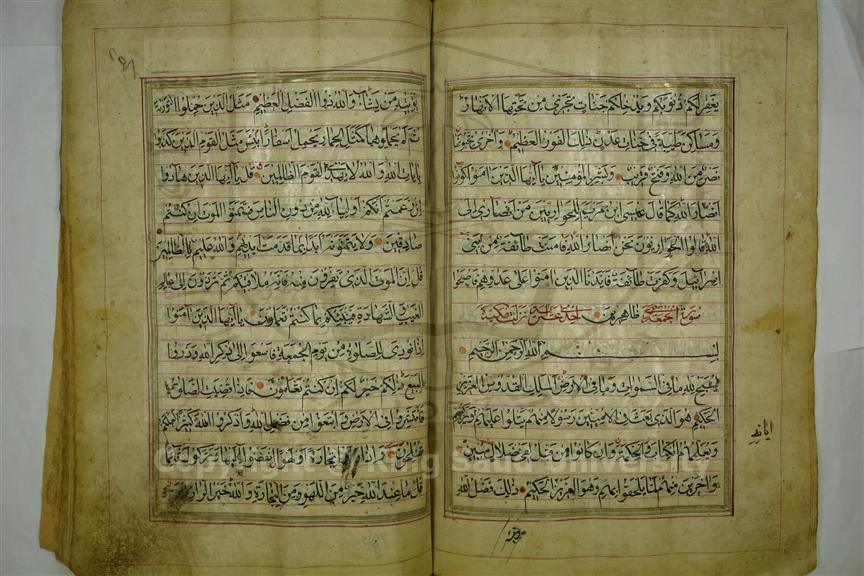 يغفر لكم ذنوبكم ويدخلكم جنات تجري من تحتها الانهار
ومساكن طيبة في جنات عدن ذلك الفوز العظيم واخرى تحبونها
نصر من الله وفتح قريب وبشر المؤمنين يا ايها الذين امنوا كونوا
انصار الله كما قال عيسى ابن مريم للحواريين من انصاري الى
الله قال الحواريون نحن انصار الله فامنت طائفة من بني
اسرائيل وكفرت طائفة فايدنا الذين امنوا على عدوهم فاصبحوا
ظاهرين سورة الجمعة
بسم الله الرحمن الرحيم
يسبح لله ما في السموات وما في الارض الملك القدوس العزيز
الحكيم هو الذي بعث في الاميين رسولا منهم يتلوا عليهم
اياته
ويعلمهم الكتاب والحكمة وان كانوا من قبل لفي ضلال مبين
واخرين منهم لما يلحقوا بهم وهو العزيز الحكيم ذلك فضل الله
يؤتيه من يشاء والله ذوا الفضل العظيم مثل الذين حملوا التورية
ثم لم يحملوها كمثل الحمار يحمل اسفارا بئس مثل القوم الذين كذبوا
بايات الله والله لا يهدي القوم الظالمين قل يا ايها الذين هادوا
ان زعمتم انكم اولياء لله من دون الناس فتمنوا الموت ان كنتم
صادقين ولا يتمنونه ابدا بما قدمت ايديهم والله عليم بالظالمين
قل ان الموت الذي تفرون منه فانه ملاقيكم ثم تردون الى عالم
الغيب والشهادة فينبئكم بما كنتم تعملون يا ايها الذين امنوا
اذا نودي للصلوة من يوم الجمعة فاسعوا الى ذكر الله وذروا
البيع ذلكم خير لكم ان كنتم تعلمون فاذا قضيت الصلوة
فانتشروا في الارض وابتغوا من فضل الله واذكروا الله كثيرا لعلكم
تفلحون واذا تجارة او لهوا انفضوا اليها وتركوك قائما
قل ما عند الله خير من اللهو ومن التجارة والله خير الرازقين
Copyright © King Saud University